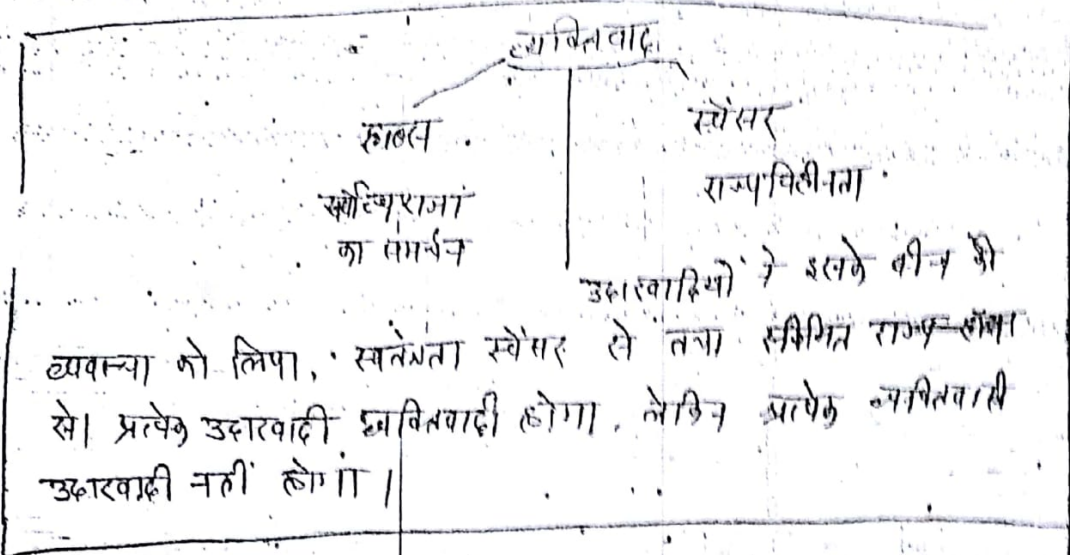 व्यक्तिवाद
हाब्स
स्पेंसर
सर्वोच्च राजा
राज्यविहीनता
का समर्थन
उदारवादियों ने इसके बीच की
व्यवस्था को लिया, स्वतंत्रता स्पेंसर से तथा सीमित राज्य हॉब्स
से। प्रत्येक उदारवादी व्यक्तिवादी होगा, लेकिन प्रत्येक व्यक्तिवादी
उदारवादी नहीं होगा।